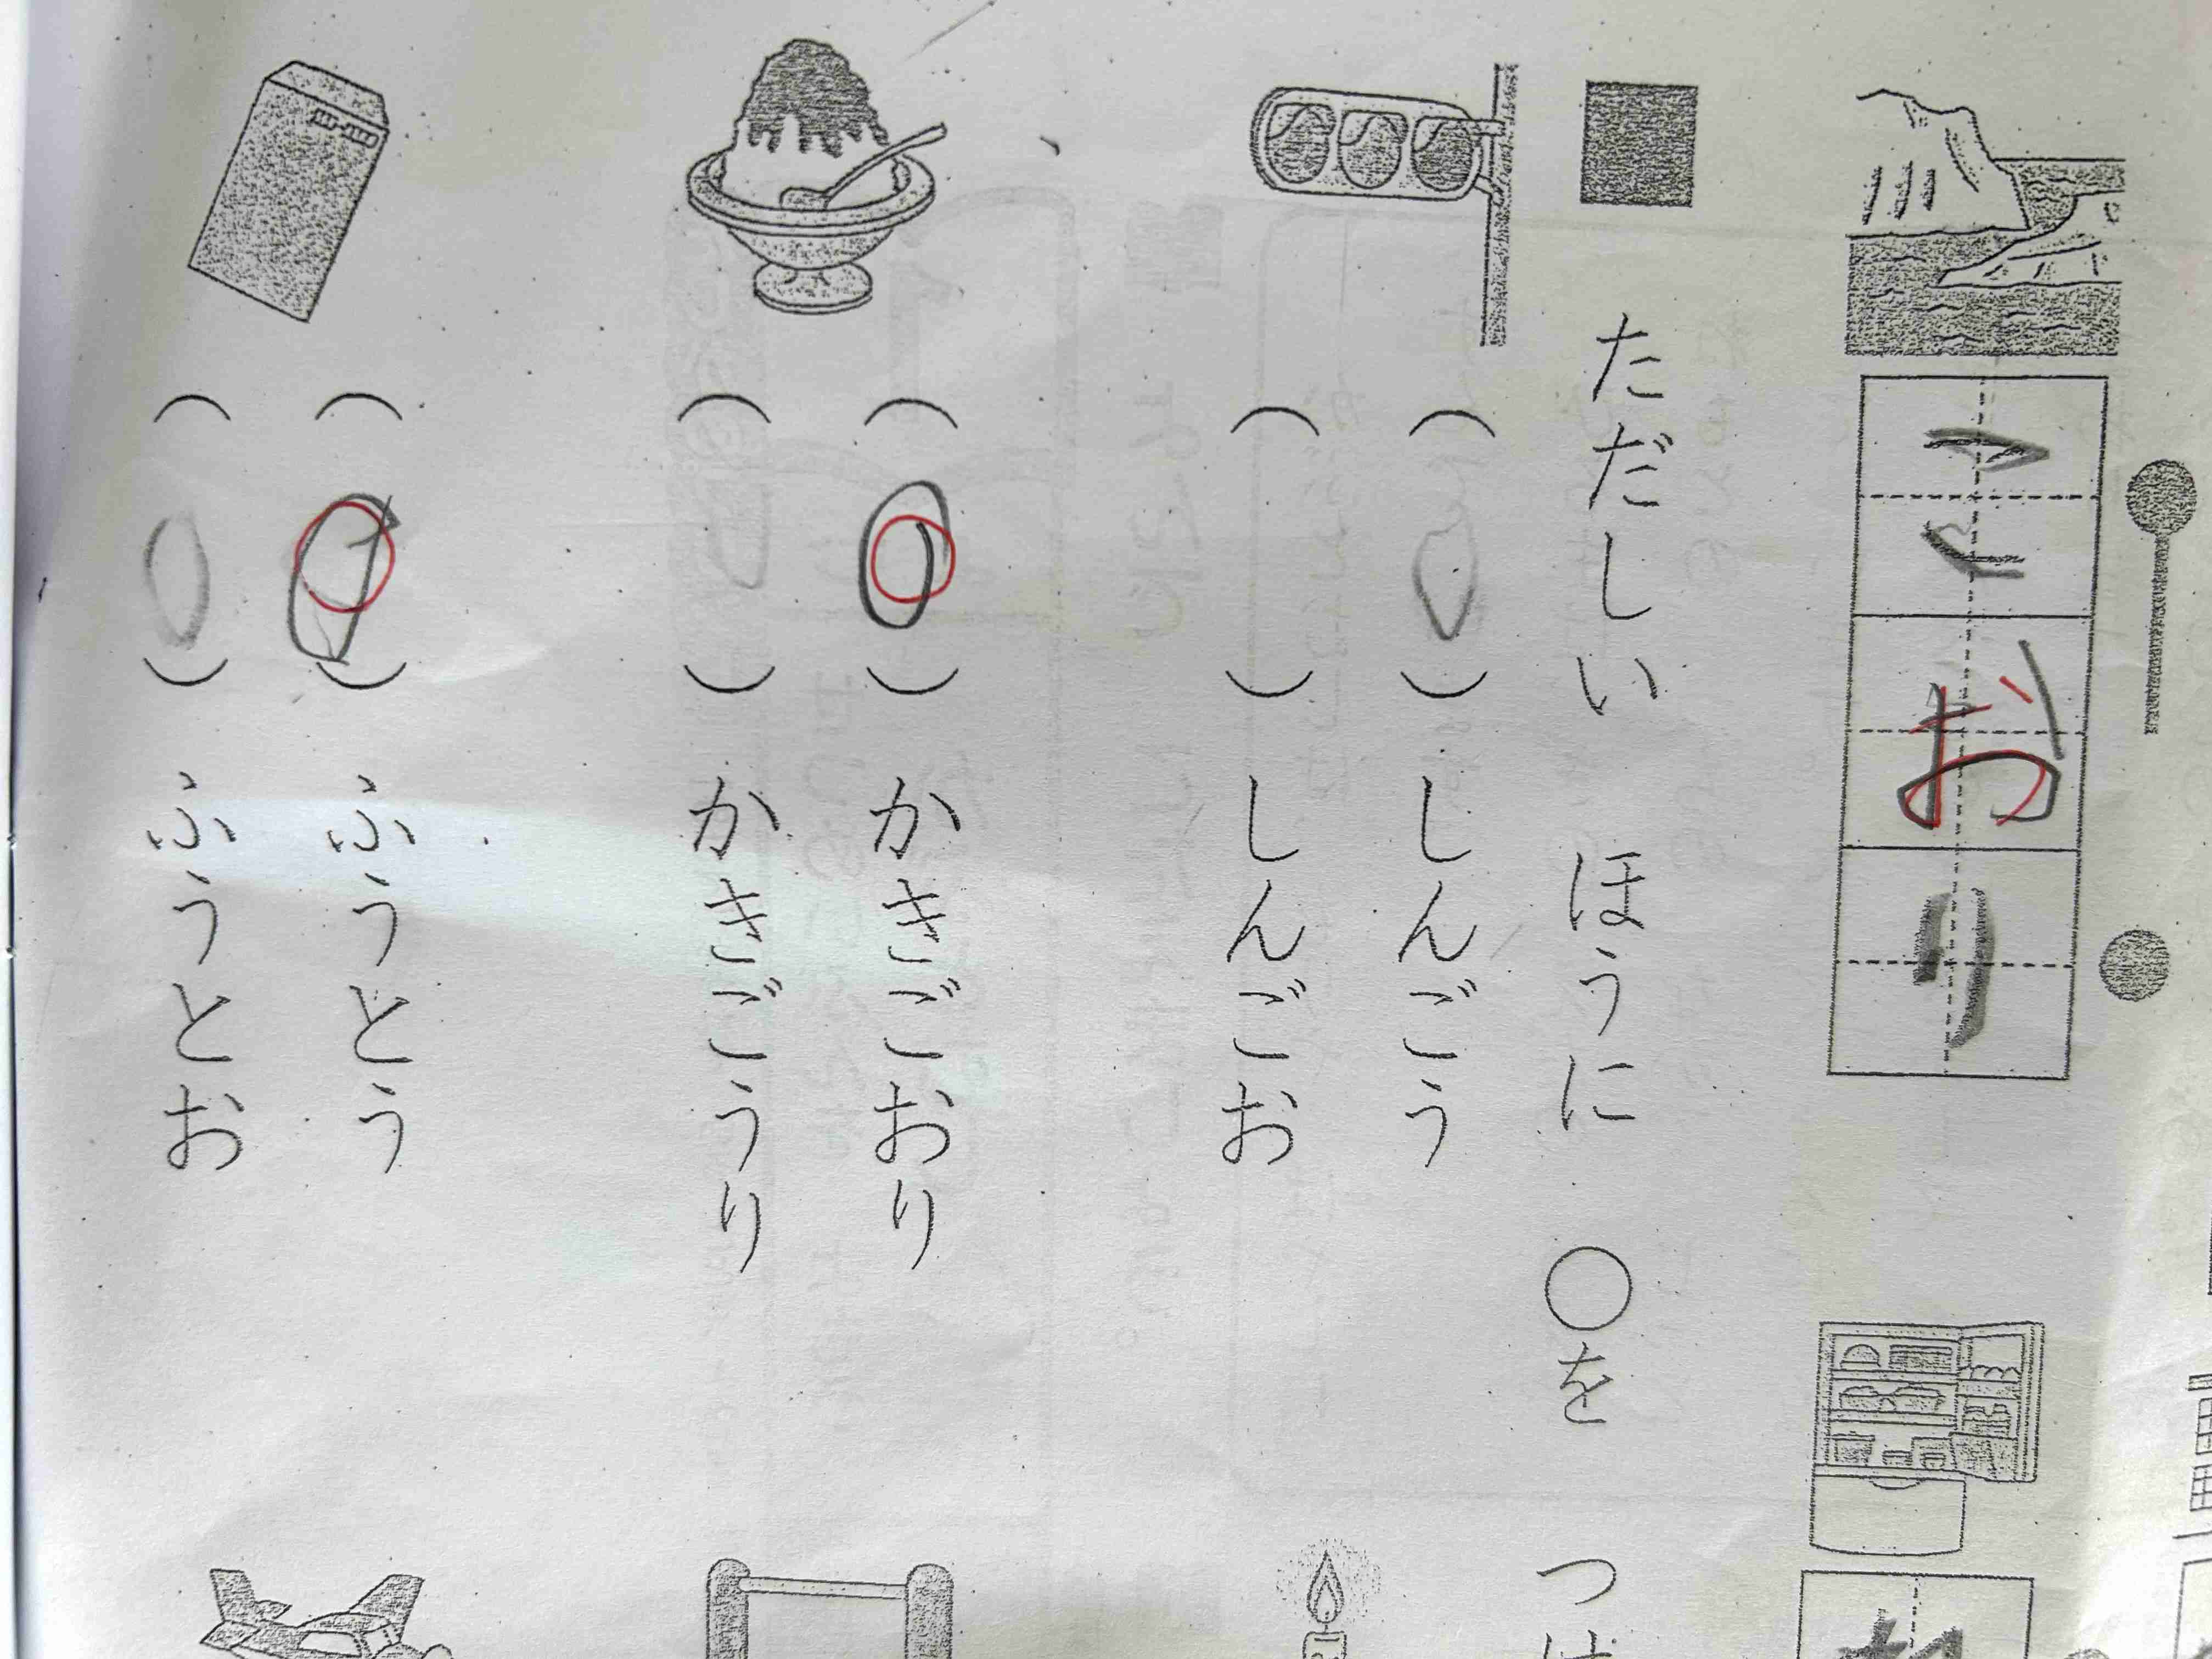 こおり
ただしい ほうに ○を つけ
( ○ ) しんごう
( ) しんごお
( ○ ) かきごおり
( ) かきごうり
( ○ ) ふうとう
( ○ ) ふうとお